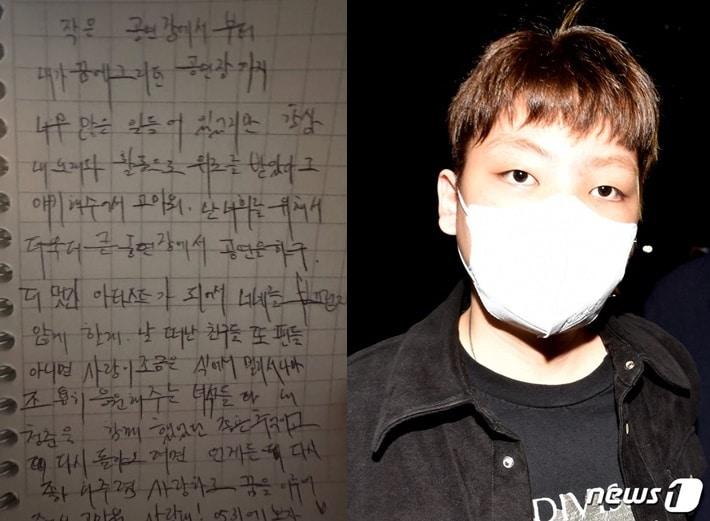 작은 공연장에서 부터
내가 꿈에 그리던 공연장 까지
너무 많은 일들이 있었지만 항상
내 노래와 활동으로 위로를 받았다고
얘기해주어서 고마워. 난 너희를 위해서
더욱더 큰 공연장에서 공연을 하구.
더 멋진 아티스트가 되어서 너네를
않게 할게. 날 떠난 친구들 또 팬들
아니면 사랑이 조금은 식어서 멀리서나마
응원해주는 녀석들 다 내
청춘을 함께 했었던
다시 돌아오려면 언제든 다시
와주면 사랑하고 꿈을
고마워 사랑해!
DIV
news1